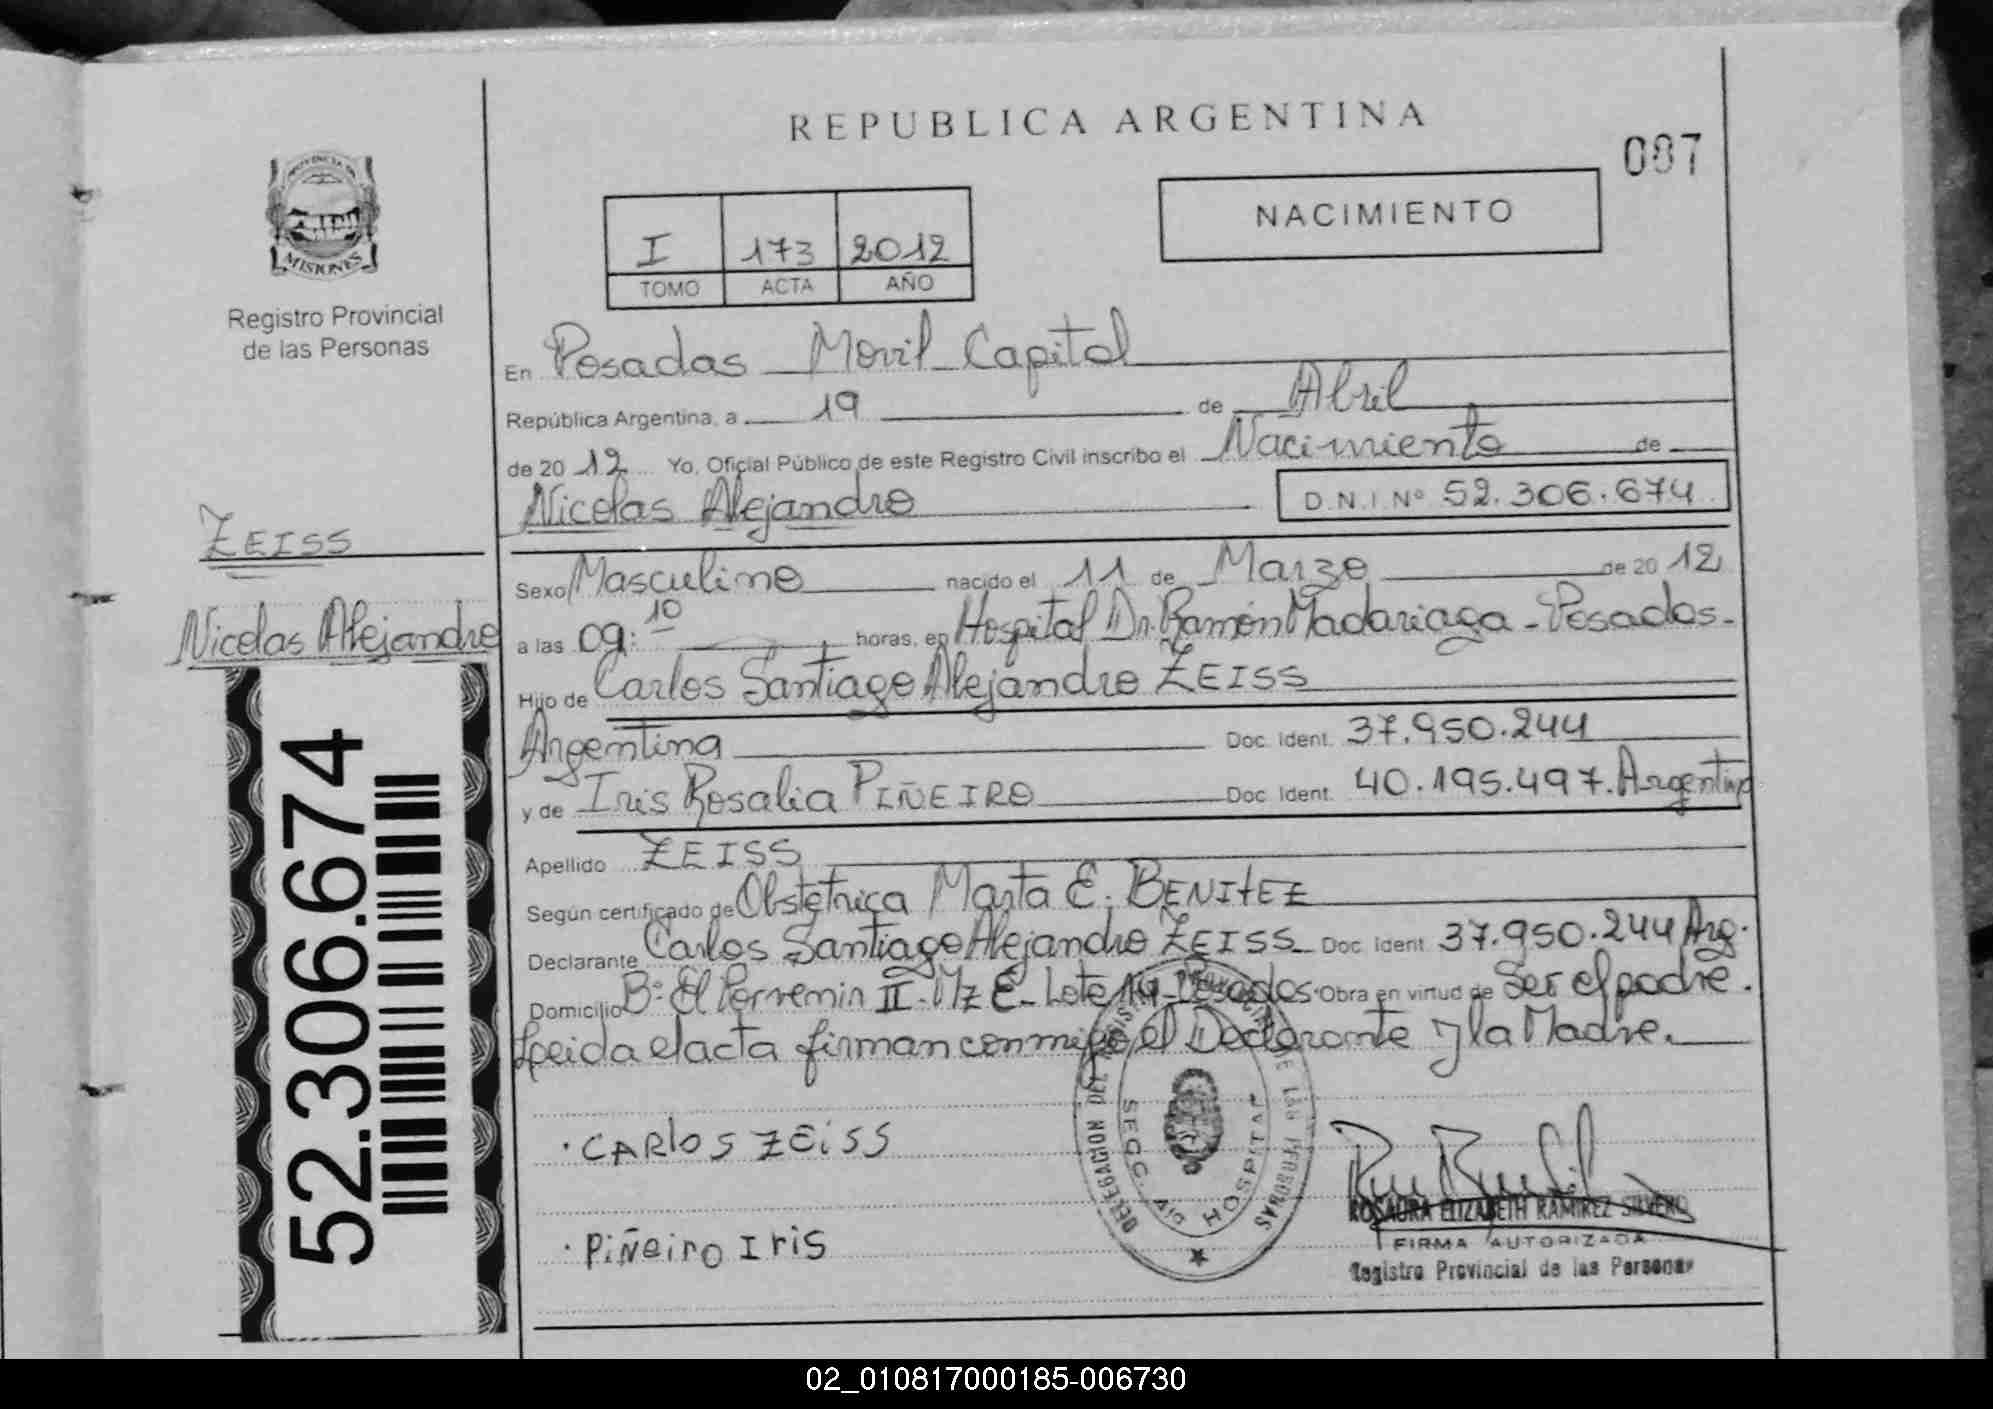 REPUBLICA ARGENTINA
087
PROVINCIA DE
MISIONES
Registro Provincial
de las Personas
I 173 2012
TOMO ACTA AÑO
NACIMIENTO
En Posadas Movil Capital
República Argentina, a 19 de Abril
de 2012 Yo, Oficial Público de este Registro Civil inscribo el Nacimiento de
Nicolas Alejandro D.N.I. Nº 52.306.674
ZEISS
Nicolas Alejandro
52.306.674
Sexo Masculino nacido el 11 de Marzo de 2012
a las 09:10 horas, en Hospital Dr. Ramón Madariaga - Posadas-
Hijo de Carlos Santiago Alejandro ZEISS
Argentina Doc. Ident. 37.950.244
y de Iris Rosalia PIÑEIRO Doc. Ident. 40.195.497. Argentina
Apellido ZEISS
Según certificado de Obstetrica Marta E. BENITEZ
Declarante Carlos Santiago Alejandro ZEISS Doc. Ident. 37.950.244 Arg.
Domicilio Bº El Porvenir II - Mz E - Lote Posadas. Obra en virtud de Ser el padre.
Leida el acta firman conmigo el Declarante y la Madre.
. CARLOS ZEISS
. PIÑEIRO IRIS
DELEGACION DEL REGISTRO PROVINCIAL DE LAS PERSONAS
SECC. HOSPITAL
ROSAURA ELIZABETH RAMIREZ SILVERO
FIRMA AUTORIZADA
Registro Provincial de las Personas
02_010817000185-006730